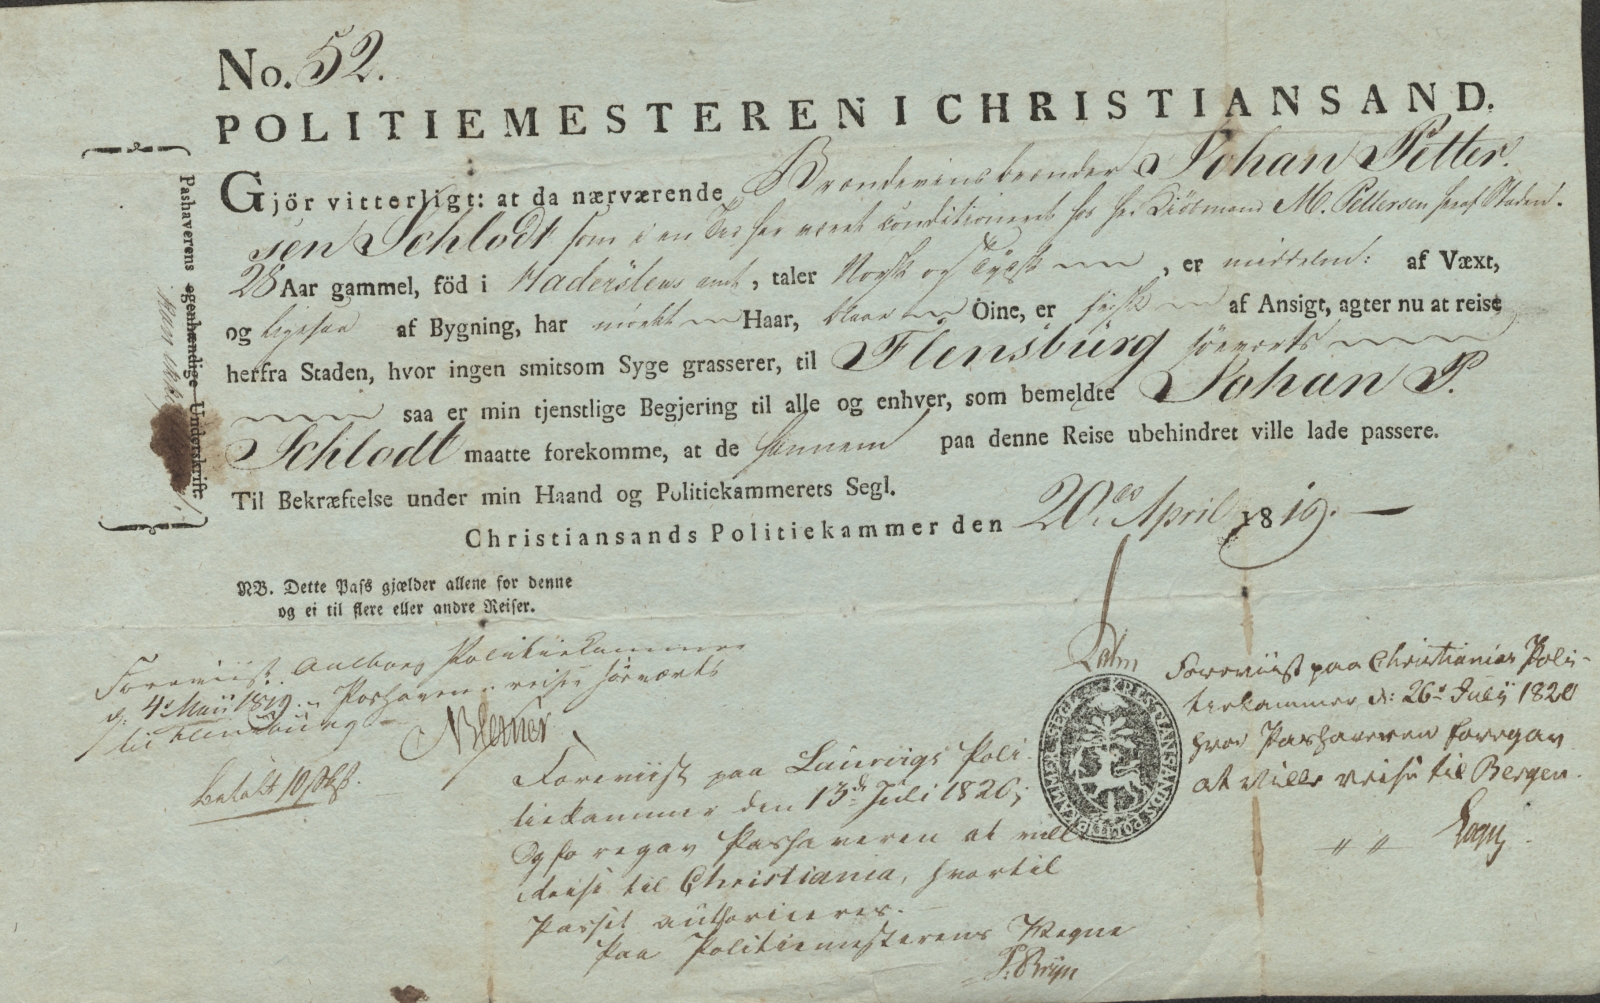 No. 52.
POLITIEMESTEREN I CHRISTIANSAND.
Gjör vitterligt: at da nærværende Brændevinsbrænder Johan Petter
sen Schlodt som i en Tid har været Conditioneret hos Hr Kiöbmand M. Pettersen her af Staden.
28 Aar gammel, föd i Haderslevs amt, taler Norsk og Tydsk, er middelm: af Væxt,
og af Bygning, har mörkt Haar, blaae Oine, er af Ansigt, agter nu at reise
herfra Staden, hvor ingen smitsom Syge grasserer, til Flensburg söeværts
saa er min tjenstlige Begjering til alle og enhver, som bemeldte Johan P.
Schlodt maatte forekomme, at de hannem paa denne Reise ubehindret ville lade passere.
Til Bekræftelse under min Haand og Politiekammerets Segl.
Christiansands Politiekammer den 20de April 1819.
NB. Dette Pass gjælder allene for denne
og ei til flere eller andre Reiser.
Pashaverens egenhændige Underskrift.
kan ikke
Foreviist Aalborg Politiekammer
d: 4de Maii 1819. Pashaveren reiser söeværts
til Flensburg
betalt 10
Foreviist paa Laurvigs Poli-
tiekammer den 13de Juli 1820;
Og foregav Pashaveren at ville
reise til Christiania, hvortil
Passet authoriceres.
Paa Politiemesterens Vegne
Foreviist paa Christianias Poli-
tiekammer d: 26de July 1820
hvor Pashaveren foregav
at ville reise til Bergen.